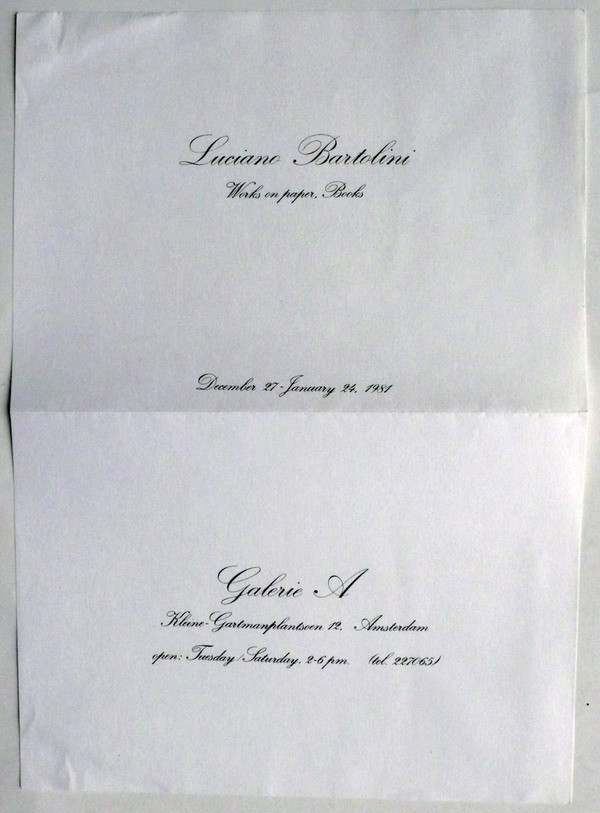 Luciano Bartolini
Works on paper, Books
December 27 - January 24, 1981
Galerie A
Kleine-Gartmanplantsoen 12, Amsterdam
open: Tuesday/Saturday, 2-6 pm. (tel. 227065)